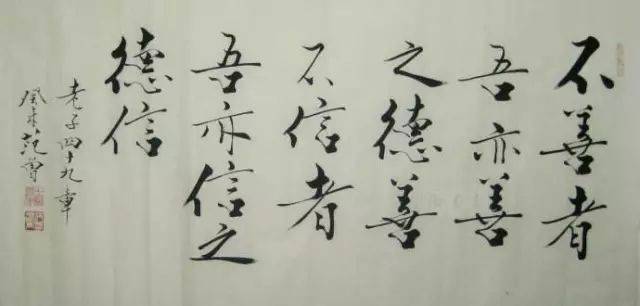 不善者
吾亦善
之德善
不信者
吾亦信之
德信
老子四十九章
癸未范曾